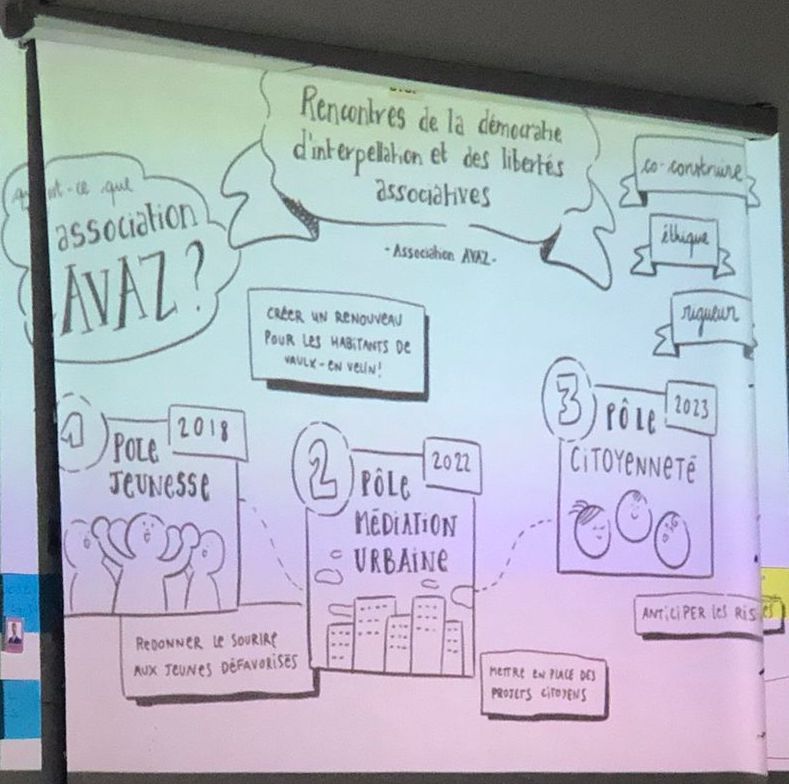 Rencontres de la démocratie
d'interpellation et des libertés
associatives
- Association AVAZ -
association
AVAZ?
co-construire
éthique
rigueur
CRÉER UN RENOUVEAU
POUR LES HABITANTS DE
VAULX-EN VELIN!
1
2018
POLE
JEUNESSE
REDONNER LE SOURIRE
AUX JEUNES DÉFAVORISÉS
2
2022
PÔLE
MÉDIATION
URBAINE
METTRE EN PLACE DES
PROJETS CITOYENS
3
2023
PÔLE
CITOYENNETÉ
ANTICIPER LES RIS